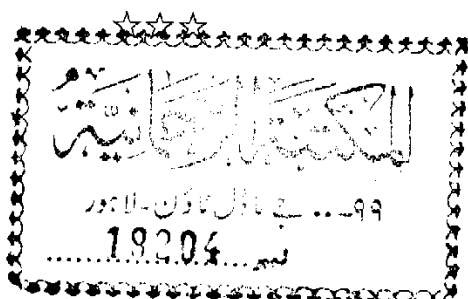 المكتبة الرحمانية
۹۹ ... جے ماڈل ٹاؤن - لاہور
نمبر 18204